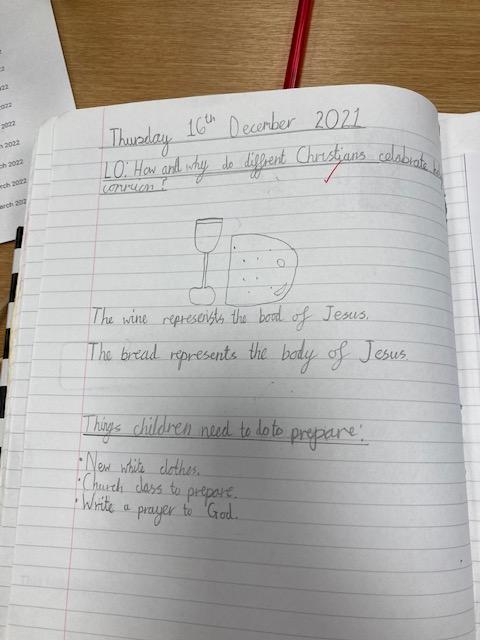 2022
2022
2022
2022
h 2022
ch 2022
arch 2022
Thursday 16th December 2021
LO: How and why do diffrent Christians celabrate
The wine represensts the bood of Jesus.
The bread represents the body of Jesus.
Things children need to do to prepare:
• New white clothes.
• Church class to prepare.
• Write a prayer to God.